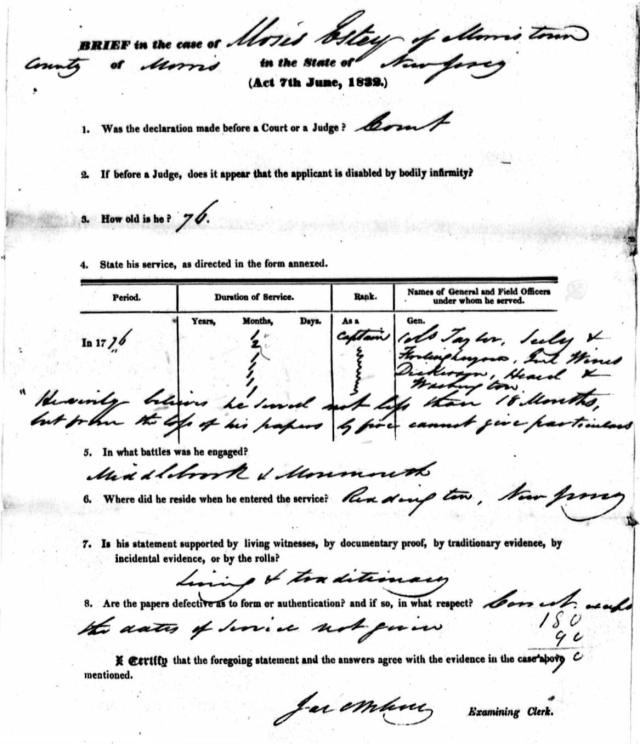 BRIEF in the case of Moses Estey of Morristown
County of Morris in the State of New Jersey
(Act 7th June, 1832.)
1. Was the declaration made before a Court or a Judge? Court
2. If before a Judge, does it appear that the applicant is disabled by bodily infirmity?
3. How old is he? 76.
4. State his service, as directed in the form annexed.
Period. Duration of Service. Rank. Names of General and Field Officers
under whom he served.
Years, Months, Days. As a Gen.
In 1776 Captain Cols Taylor,
Frelinghuysen, Genl Wines
Dickerson, Heard &
Washington
" He verily believes he served not less than 18 Months,
but from the loss of his papers by fire cannot give particulars
5. In what battles was he engaged?
Middlebrook & Monmouth
6. Where did he reside when he entered the service? Readington, New Jersey
7. Is his statement supported by living witnesses, by documentary proof, by traditionary evidence, by
incidental evidence, or by the rolls?
Living & traditionary
8. Are the papers defective as to form or authentication? and if so, in what respect? Correct. except
the dates of service not given
180
90
I Certify that the foregoing statement and the answers agree with the evidence in the case above
mentioned.
Examining Clerk.